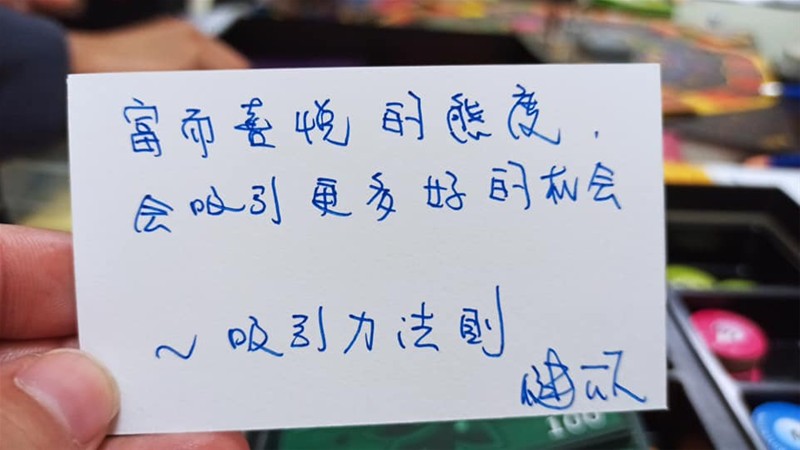 富而喜悅的態度,
会吸引更多好的机会
~吸引力法則
100